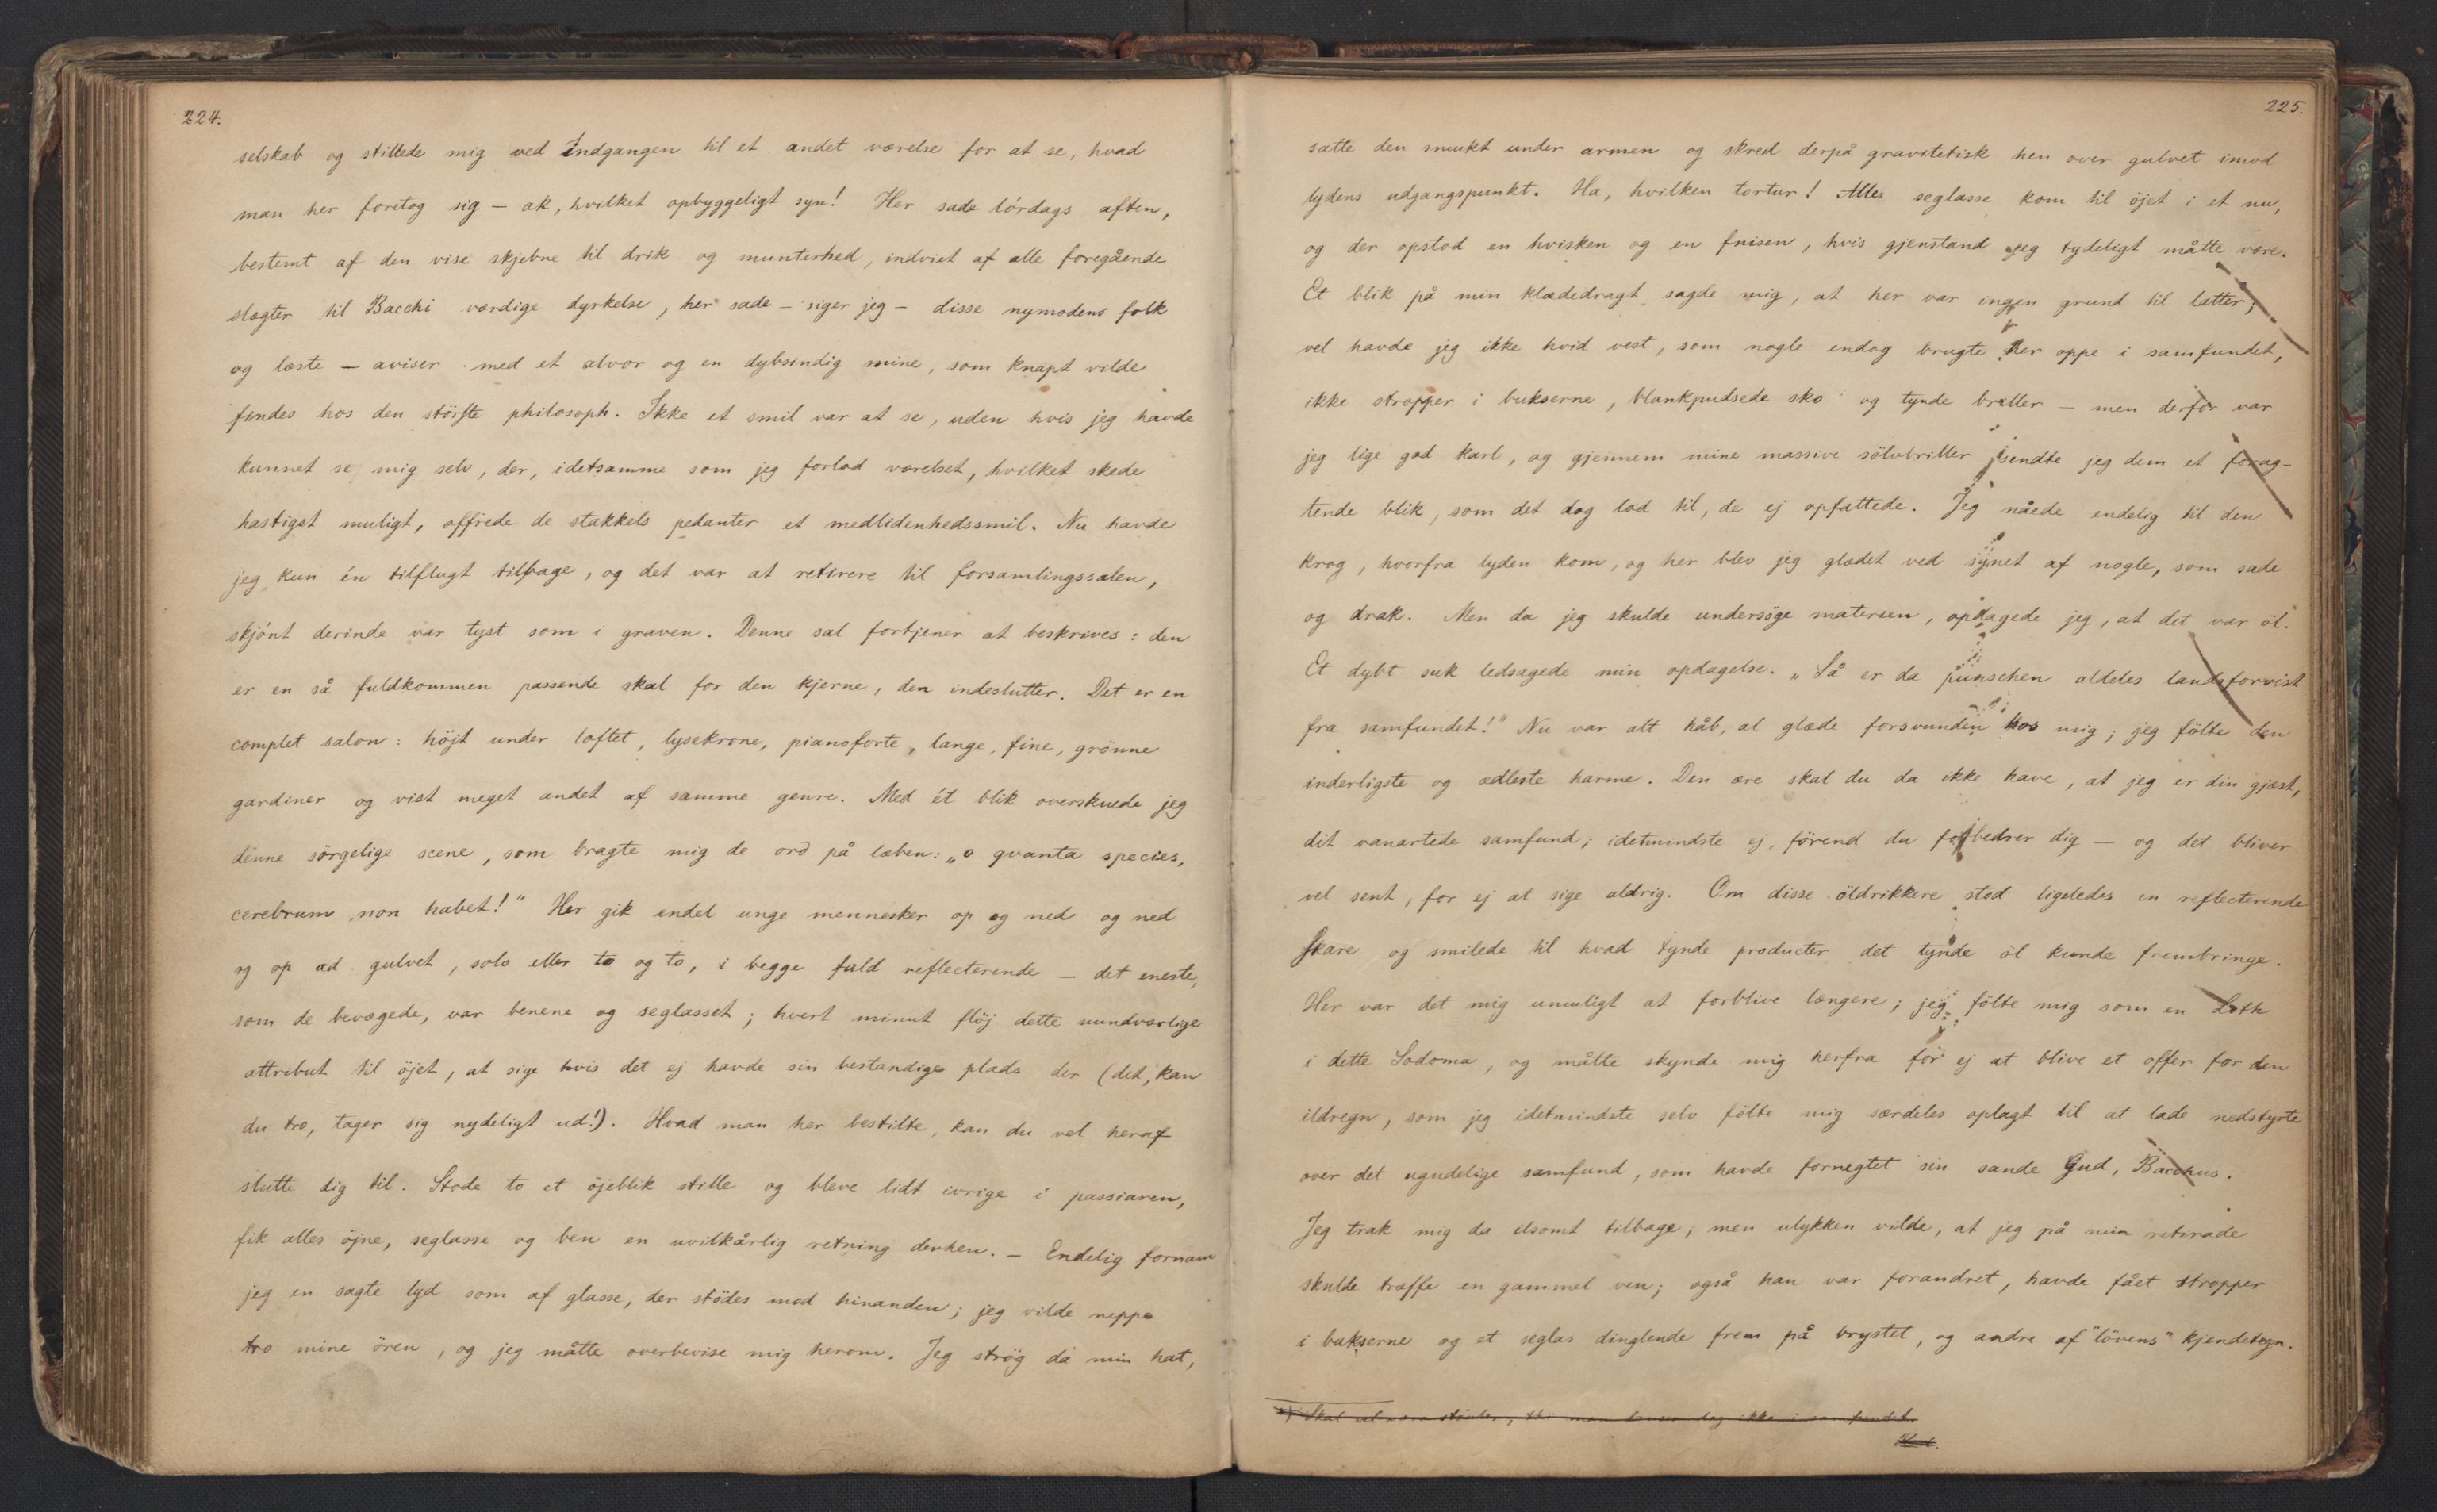 224.
selskab og stillede mig ved Indgangen til et andet værelse for at se, hvad
man her foretog sig — ak, hvilket opbyggeligt syn! Her sade lördags aften,
bestemt af den vise skjebne til drik og munterhed, indviet af alle foregående
slægter til Bacchi værdige dyrkelse, her sade — siger jeg — disse nymodens folk
og læste — aviser med et alvor og en dybsindig mine, som knapt vilde
findes hos den störste philosoph. Ikke et smil var at se, uden hvis jeg havde
kunnet se mig selv, der, idetsamme som jeg forlod værelset, hvilket skede
hastigst muligt, offrede de stakkels pedanter et medlidenhedssmil. Nu havde
jeg kun én tilflugt tilbage, og det var at retirere til forsamlingssalen,
skjönt derinde var tyst som i graven. Denne sal fortjener at beskrives: den
er en så fuldkommen passende skal for den kjerne, den indeslutter. Det er en
complet salon: höjt under loftet, lysekrone, pianoforte, lange, fine, grönne
gardiner og vist meget andet af samme genre. Med ét blik overskuede jeg
denne sörgelige scene, som bragte mig de ord på læben: „o qvanta species,
cerebrum non habet!" Her gik endel unge mennesker op og ned og ned
og op ad gulvet, solo eller to og to, i begge fald reflecterende — det eneste,
som de bevægede, var benene og seglasset; hvert minut flöj dette uundværlige
attribut til öjet, at sige hvis det ej havde sin bestandige plads der (det, kan
du tro, tager sig nydeligt ud!). Hvad man her bestilte, kan du vel heraf
slutte dig til. Stode to et öjeblik stille og bleve lidt ivrige i passiaren,
fik alles öjne, seglasse og ben en uvilkårlig retning derhen. — Endelig fornam
jeg en sagte lyd som af glasse, der stödes mod hinanden; jeg vilde neppe
tro mine ören, og jeg måtte overbevise mig herom. Jeg strög da min hat,
225.
satte den smukt under armen og skred derpå gravitetisk hen over gulvet imod
lydens udgangspunkt. Ha, hvilken tortur! Alle seglasse kom til öjet i et nu,
og der opstod en hvisken og en fnisen, hvis gjenstand jeg tydeligt måtte være.
Et blik på min klædedragt sagde mig, at her var ingen grund til latter;
vel havde jeg ikke hvid vest, som nogle endog brugte her oppe i samfundet,
ikke stropper i bukserne, blankpudsede sko og tynde briller — men derfor var
jeg lige god karl, og gjennem mine massive sölvbriller sendte jeg dem et forag-
tende blik, som det dog lod til, de ej opfattede. Jeg nåede endelig til den
krog, hvorfra lyden kom, og her blev jeg glædet ved synet af nogle, som sade
og drak. Men da jeg skulde undersöge materien, opdagede jeg, at det var öl.
Et dybt suk ledsagede min opdagelse. „Så er da punschen aldeles landsforvist
fra samfundet!" Nu var alt håb, al glæde forsvunden hos mig; jeg fölte den
inderligste og ædleste harme. Den ære skal du da ikke have, at jeg er din gjæst,
dit vanartede samfund; idetmindste ej, förend du forbedrer dig — og det bliver
vel sent, for ej at sige aldrig. Om disse öldrikkere stod ligeledes en reflecterende
skare og smilede til hvad tynde producter det tynde öl kunde frembringe.
Her var det mig umuligt at forblive længere; jeg fölte mig som en Loth
i dette Sodoma, og måtte skynde mig herfra for ej at blive et offer for den
ildregn, som jeg idetmindste selv fölte mig særdeles oplagt til at lade nedstyrte
over det ugudelige samfund, som havde fornegtet sin sande Gud, Bacchus.
Jeg trak mig da ilsomt tilbage; men ulykken vilde, at jeg på min retirade
skulde træffe en gammel ven; også han var forandret, havde fået stropper
i bukserne og et seglas dinglende frem på brystet, og andre af "lövens" kjendetegn.